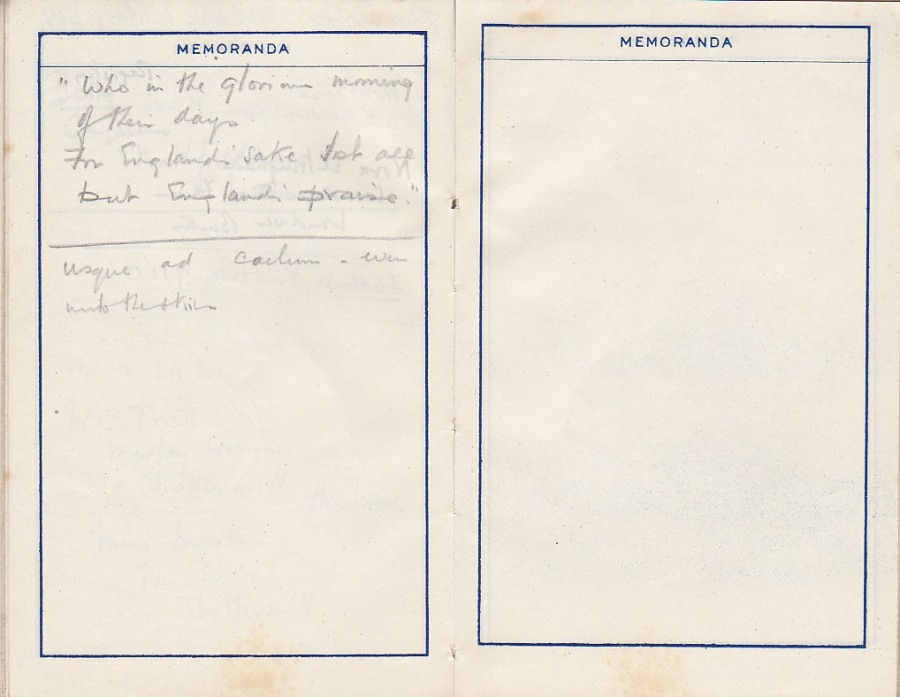 MEMORANDA
"Who in the glorious morning
of their days
For England's sake lost all
but England's praise."
usque ad caelum - even
unto the skies
MEMORANDA